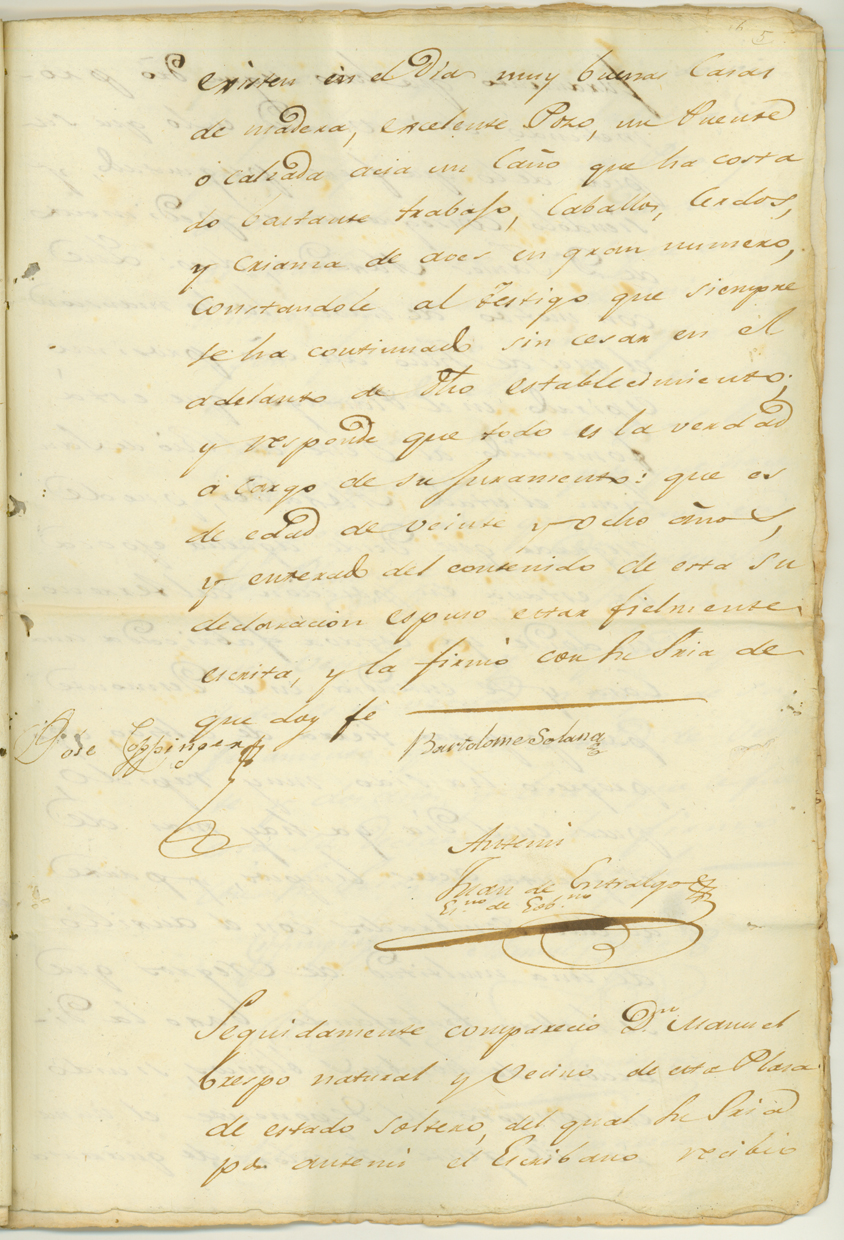 5
existen en el Dia muy buenas Casas
de madera, excelente Pozo, un Puente
ó calzada acia un Caño que ha costa
do bastante trabajo, Caballos, Cerdos,
y crianza de aves en gran numero,
constandole al testigo que siempre
se ha continuado sin cesar en el
adelanto de dho establecimiento;
y responde que todo es la verdad
á cargo de su Juramento: que es
de edad de veinte y ocho años,
y enterado del contenido de esta su
declaracion espuso estar fielmente
escrita, y la firmó con su Sria de
que doy fé
José Coppinger
Bartolome Solana
Antemi
Juan de Entralgo
Es.no de Gob.no
Seguidamente comparecio D.n Manuel
Crespo natural y Vecino de esta Plaza
de estado soltero, del qual su Sria
por antemi el Escribano recibio